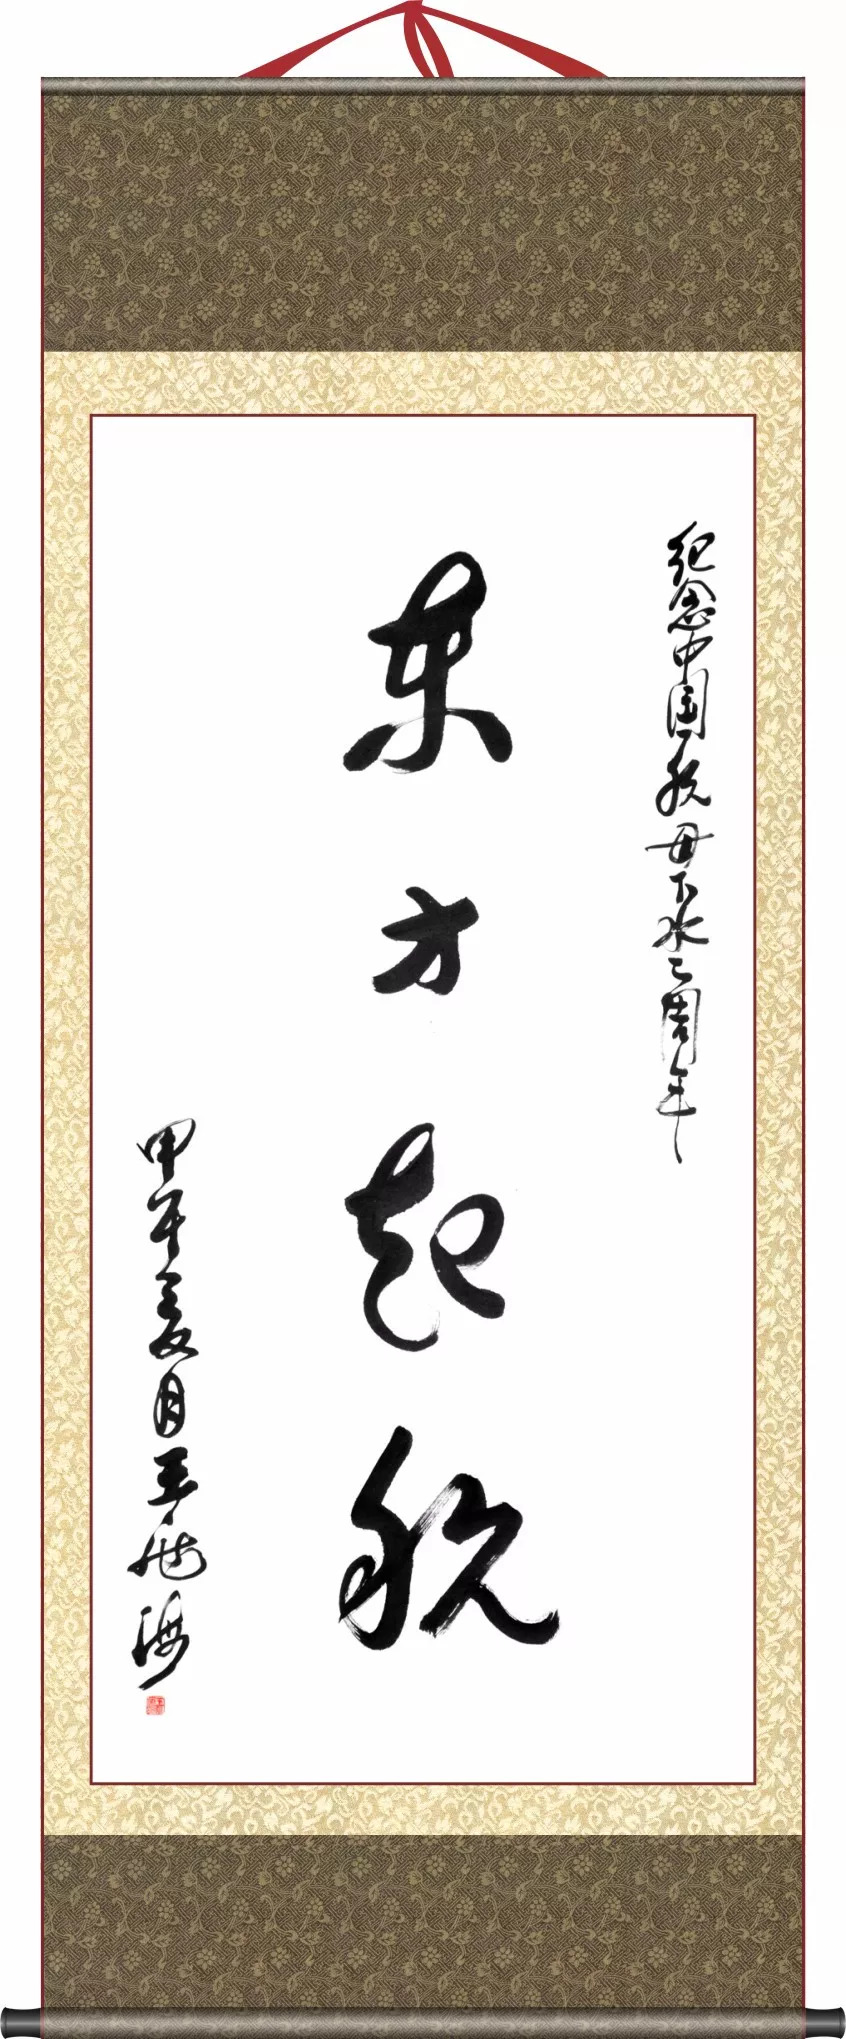 东方起航
纪念中国航母下水二周年
甲午夏月王海